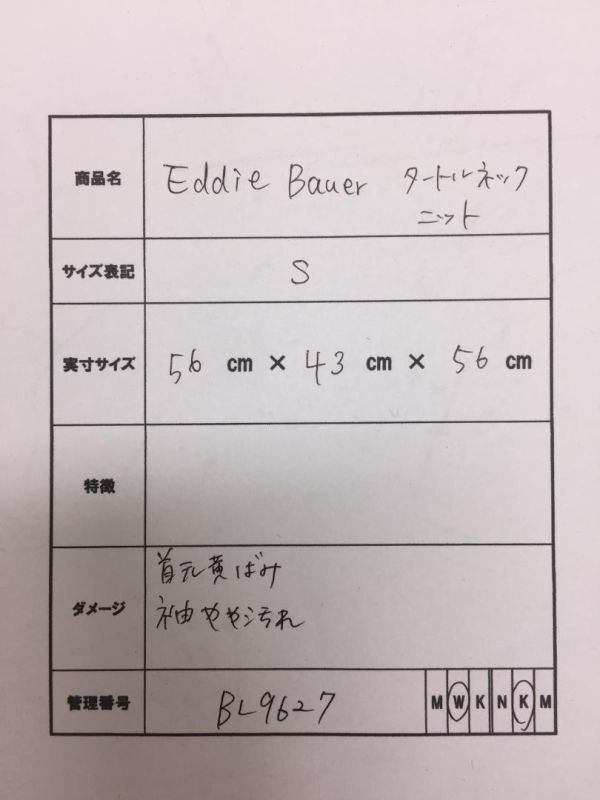 商品名 Eddie Bauer タートルネック
ニット
サイズ表記 S
実寸サイズ 56 cm × 43 cm × 56 cm
特徴
首元黄ばみ
ダメージ 袖やや汚れ
管理番号 BL9627 M W K N K M